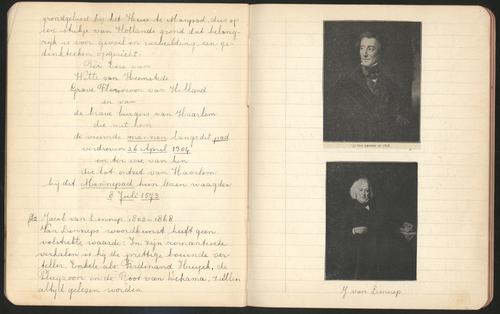 grondgebied bij het Huis te Manpad, dus op
een stukje van Hollands grond dat belang-
rijk is voor gevoel en verbeelding, een ge-
denkteeken opgericht:
Ter Eere van
Witte van Haemstede
Grave Florisoon van Holland
en van
de brave burgers van Haarlem
die met hem
de vreemde mannen langs dit pad
verdreven 26 April 1304
en ter eere van hen
die tot ontzet van Haarlem
bij dit Mannepad hun leven waagden
8 Juli 1573
Jacob van Lennep. 1802-1868
Van Lenneps woordkunst heeft geen
volstrekte waarde: In zijn romantische
verhalen is hij de prettige boeiende ver-
teller. Enkele als: Ferdinand Huyck, de
en de Roos van Dekama, zullen
altijd gelezen worden.
J. van Lennep